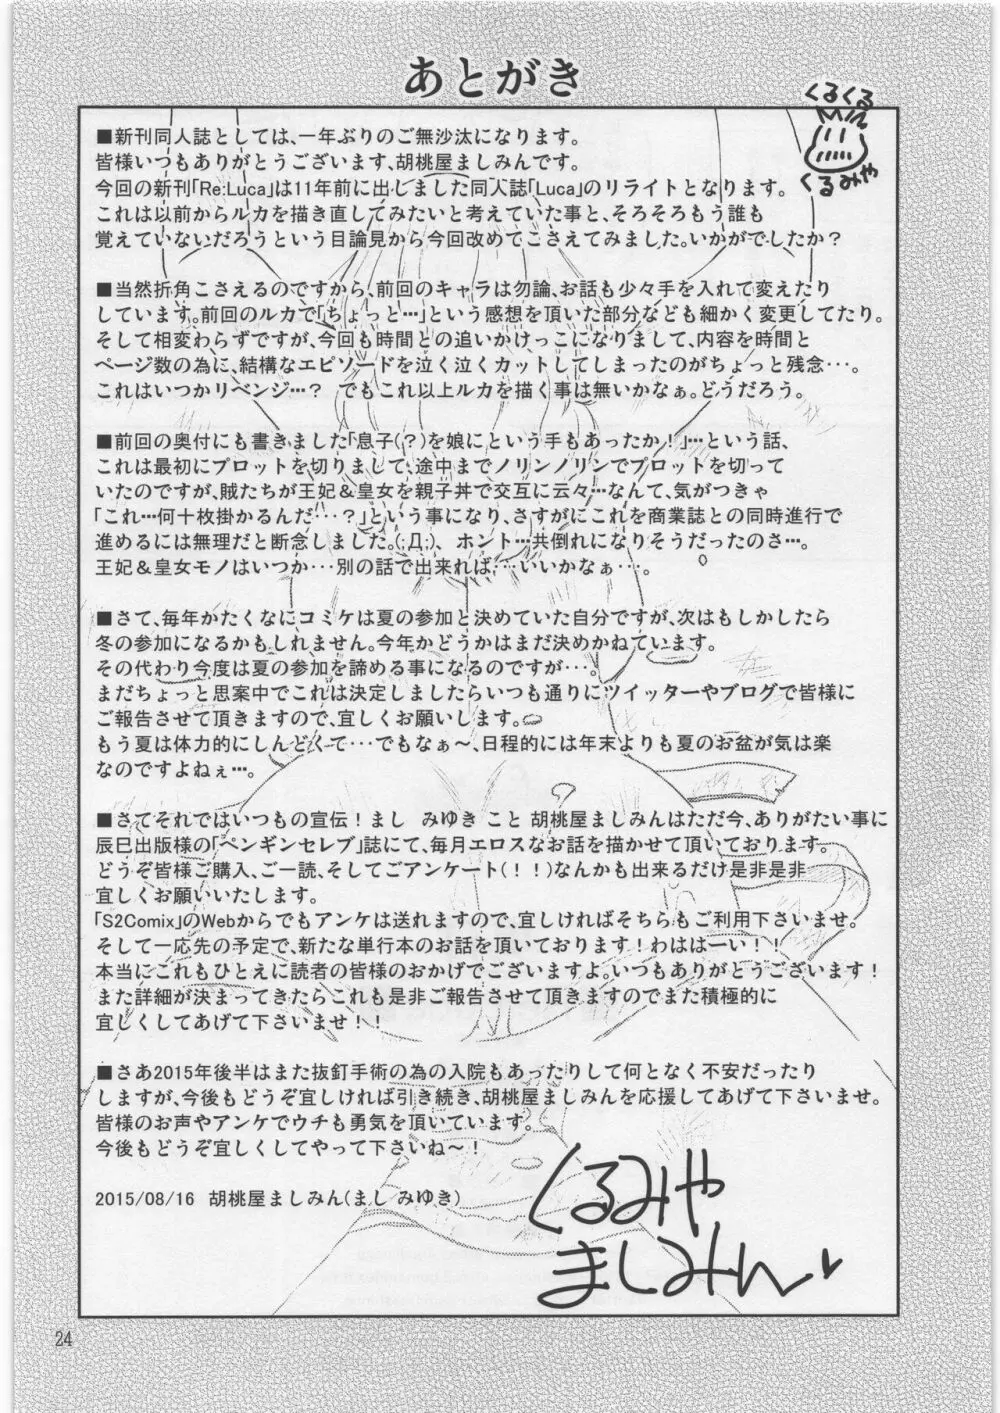 あとがき
くるくる
Min
くるみや
■新刊同人誌としては、一年ぶりのご無沙汰になります。
皆様いつもありがとうございます、胡桃屋ましみんです。
今回の新刊「Re:Luca」は11年前に出しました同人誌「Luca」のリライトとなります。
これは以前からルカを描き直してみたいと考えていた事と、そろそろもう誰も
覚えていないだろうという目論見から今回改めてこさえてみました。いかがでしたか？
■当然折角こさえるのですから、前回のキャラは勿論、お話も少々手を入れて変えたり
しています。前回のルカで「ちょっと…」という感想を頂いた部分なども細かく変更してたり。
そして相変わらずですが、今回も時間との追いかけっこになりまして、内容を時間と
ページ数の為に、結構なエピソードを泣く泣くカットしてしまったのがちょっと残念…。
これはいつかリベンジ…？　でもこれ以上ルカを描く事は無いかなぁ。どうだろう。
■前回の奥付にも書きました「息子(？)を娘にという手もあったか！」…という話、
これは最初にプロットを切りまして、途中までノリンノリンでプロットを切って
いたのですが、賊たちが王妃＆皇女を親子丼で交互に云々…なんて、気がつきゃ
「これ…何十枚掛かるんだ…？」という事になり、さすがにこれを商業誌との同時進行で
進めるには無理だと断念しました。(;Д;)、ホント…共倒れになりそうだったのさ…。
王妃＆皇女モノはいつか…別の話で出来れば…いいかなぁ…。
■さて、毎年かたくなにコミケは夏の参加と決めていた自分ですが、次はもしかしたら
冬の参加になるかもしれません。今年かどうかはまだ決めかねています。
その代わり今度は夏の参加を諦める事になるのですが…。
まだちょっと思案中でこれは決定しましたらいつも通りにツイッターやブログで皆様に
ご報告させて頂きますので、宜しくお願いします。
もう夏は体力的にしんどくて…でもなぁ～、日程的には年末よりも夏のお盆が気は楽
なのですよねぇ…。
■さてそれではいつもの宣伝！まし　みゆき こと 胡桃屋ましみんはただ今、ありがたい事に
辰巳出版様の「ペンギンセレブ」誌にて、毎月エロスなお話を描かせて頂いております。
どうぞ皆様ご購入、ご一読、そしてごアンケート(！！)なんかも出来るだけ是非是非
宜しくお願いいたします。
「S2Comix」のWebからでもアンケは送れますので、宜しければそちらもご利用下さいませ。
そして一応先の予定で、新たな単行本のお話を頂いております！わははーい！！
本当にこれもひとえに読者の皆様のおかげでございますよ。いつもありがとうございます！
また詳細が決まってきたらこれも是非ご報告させて頂きますのでまた積極的に
宜しくしてあげて下さいませ！！
■さあ2015年後半はまた抜釘手術の為の入院もあったりして何となく不安だったり
しますが、今後もどうぞ宜しければ引き続き、胡桃屋ましみんを応援してあげて下さいませ。
皆様のお声やアンケでウチも勇気を頂いています。
今後もどうぞ宜しくしてやって下さいね～！
2015/08/16　胡桃屋ましみん(まし みゆき)
くるみや
ましみん♥
24